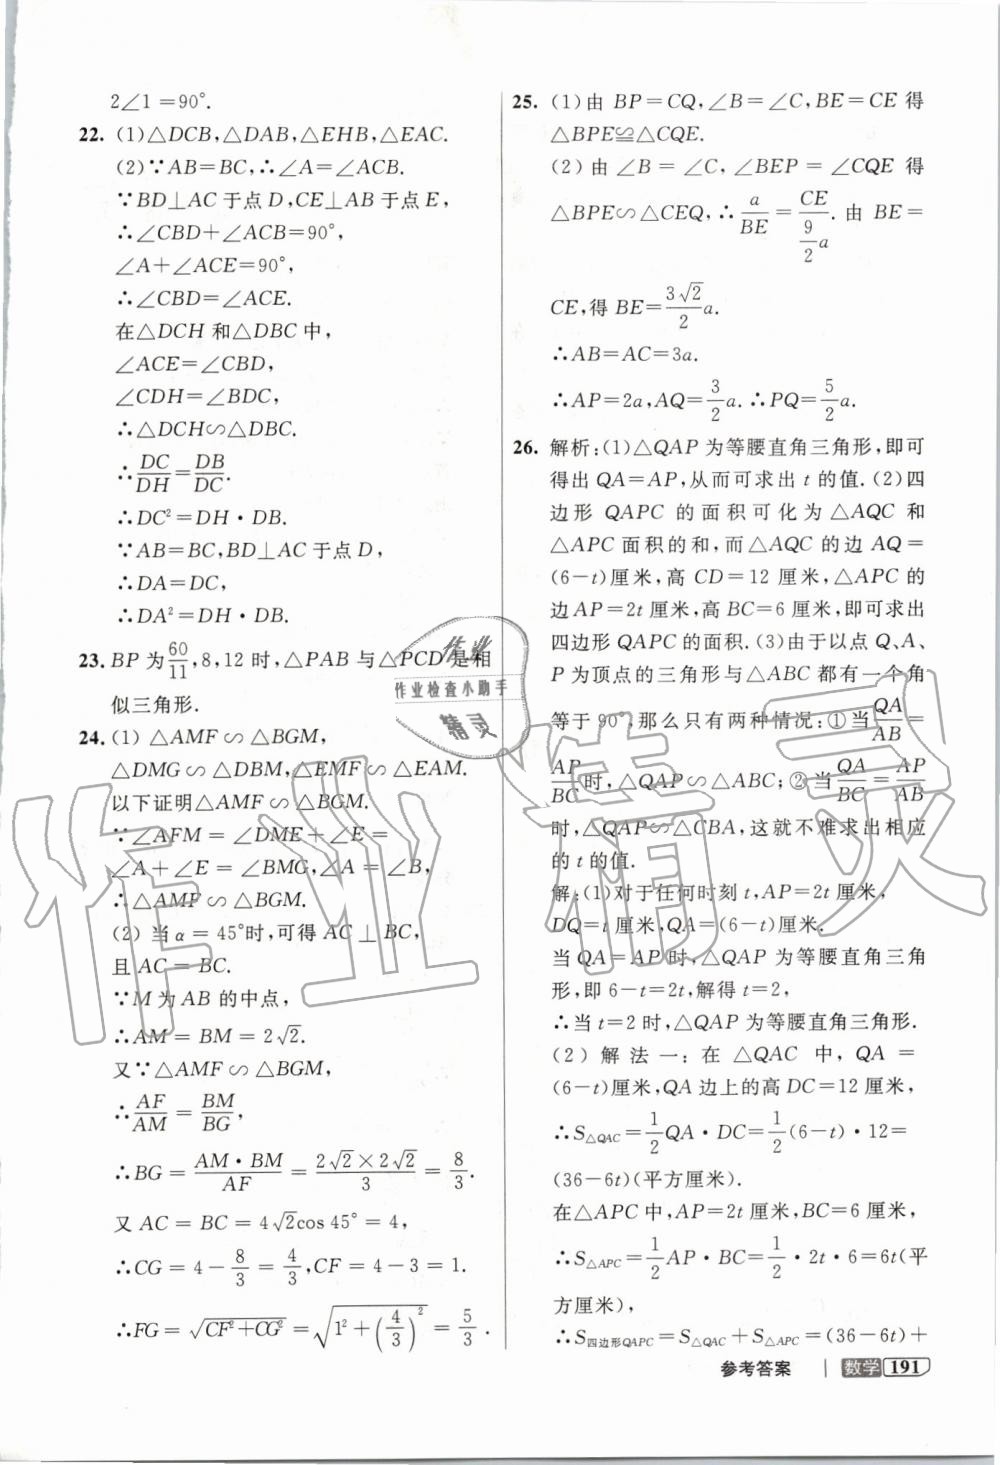 2∠1=90°.
22. (1)△DCB,△DAB,△EHB,△EAC.
(2)∵AB=BC,∴∠A=∠ACB.
∵BD⊥AC于点D,CE⊥AB于点E,
∴∠CBD+∠ACB=90°,
∠A+∠ACE=90°,
∴∠CBD=∠ACE.
在△DCH和△DBC中,
∠ACE=∠CBD,
∠CDH=∠BDC,
∴△DCH∽△DBC.
∴DC/DH=DB/DC.
∴DC²=DH·DB.
∵AB=BC,BD⊥AC于点D,
∴DA=DC,
∴DA²=DH·DB.
23. BP为60/11,8,12时,△PAB与△PCD是相
似三角形.
24. (1) △AMF∽△BGM,
△DMG∽△DBM,△EMF∽△EAM.
以下证明△AMF∽△BGM.
∵∠AFM=∠DME+∠E=
∠A+∠E=∠BMG,∠A=∠B,
∴△AMF∽△BGM.
(2) 当α=45°时,可得AC⊥BC,
且AC=BC.
∵M为AB的中点,
∴AM=BM=2√2.
又∵△AMF∽△BGM,
∴AF/AM=BM/BG,
∴BG=AM·BM/AF=2√2×2√2/3=8/3.
又AC=BC=4√2cos45°=4,
∴CG=4-8/3=4/3,CF=4-3=1.
∴FG=√(CF²+CG²)=√(1²+(4/3)²)=5/3.
25. (1)由BP=CQ,∠B=∠C,BE=CE得
△BPE≌△CQE.
(2)由∠B=∠C,∠BEP=∠CQE得
△BPE∽△CEQ,∴a/BE=CE/(9/2 a).由BE=
CE,得BE=3√2/2 a.
∴AB=AC=3a.
∴AP=2a,AQ=3/2 a.∴PQ=5/2 a.
26. 解析:(1)△QAP为等腰直角三角形,即可
得出QA=AP,从而可求出t的值.(2)四
边形QAPC的面积可化为△AQC和
△APC面积的和,而△AQC的边AQ=
(6-t)厘米,高CD=12厘米,△APC的
边AP=2t厘米,高BC=6厘米,即可求出
四边形QAPC的面积.(3)由于以点Q、A、
P为顶点的三角形与△ABC都有一个角
等于90°,那么只有两种情况:①当QA/AB=
AP/BC时,△QAP∽△ABC;②当QA/BC=AP/AB
时,△QAP∽△CBA,这就不难求出相应
的t的值.
解:(1)对于任何时刻t,AP=2t厘米,
DQ=t厘米,QA=(6-t)厘米.
当QA=AP时,△QAP为等腰直角三角
形,即6-t=2t,解得t=2,
∴当t=2时,△QAP为等腰直角三角形.
(2)解法一:在△QAC中,QA=
(6-t)厘米,QA边上的高DC=12厘米,
∴S△QAC=1/2 QA·DC=1/2(6-t)·12=
(36-6t)(平方厘米).
在△APC中,AP=2t厘米,BC=6厘米,
∴S△APC=1/2 AP·BC=1/2·2t·6=6t(平
方厘米),
∴S四边形QAPC=S△QAC+S△APC=(36-6t)+
参考答案 | 数学 191
作业
作业检查小助手
精灵
作业精灵